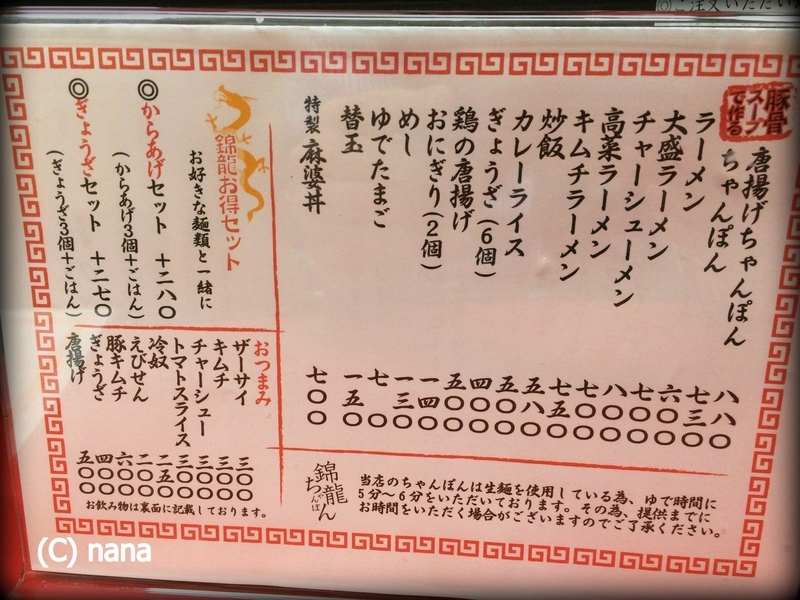 ◎ご注文いただい
豚骨スープで作る
唐揚げちゃんぽん 八八〇
ちゃんぽん 七三〇
ラーメン 六〇〇
大盛ラーメン 七〇〇
チャーシューメン 八〇〇
高菜ラーメン 七〇〇
キムチラーメン 七五〇
炒飯 五八〇
カレーライス 五〇〇
ぎょうざ(6個) 四〇〇
鶏の唐揚げ 五〇〇
おにぎり(2個) 一四〇
めし 一三〇
ゆでたまご 七〇
替玉 一五〇
特製 麻婆丼 七〇〇
錦龍お得セット
お好きな麺類と一緒に
◎からあげセット +二八〇
(からあげ3個+ごはん)
◎ぎょうざセット +二七〇
(ぎょうざ3個+ごはん)
おつまみ
ザーサイ 三〇〇
キムチ 三〇〇
チャーシュー 三〇〇
トマトスライス 三〇〇
冷奴 二五〇
えびせん 二〇〇
豚キムチ 六〇〇
ぎょうざ 四〇〇
唐揚げ 五〇〇
お飲み物は裏面に記載しております。
錦龍
ちゃんぽん
当店のちゃんぽんは生麺を使用している為、ゆで時間に
5分〜6分をいただいております。その為、提供までに
お時間をいただく場合がございますのでご了承ください。
(C) nana